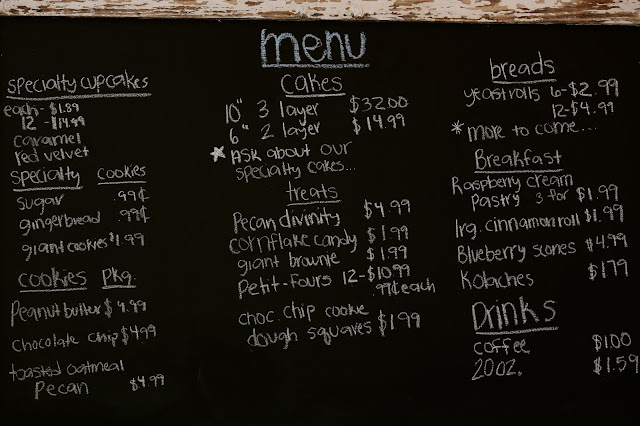 menu
specialty cupcakes
each - $1.89
12 - $14.99
caramel
red velvet
specialty cookies
sugar .99¢
gingerbread .99¢
giant cookies $1.99
cookies pkg.
Peanut butter $4.99
chocolate chip $4.99
toasted oatmeal
pecan $4.99
cakes
10" 3 layer $32.00
6" 2 layer $14.99
*Ask about our
specialty cakes...
treats
Pecan divinity $4.99
cornflake candy $1.99
giant brownie $1.99
Petit-fours 12-$10.99
.99¢ each
choc. chip cookie
dough squares $1.99
breads
yeast rolls 6-$2.99
12-$4.99
*more to come...
Breakfast
Raspberry cream
pastry 3 for $1.99
lrg. cinnamon roll $1.99
Blueberry scones $4.99
Kolaches $1.79
Drinks
coffee $1.00
20oz. $1.59